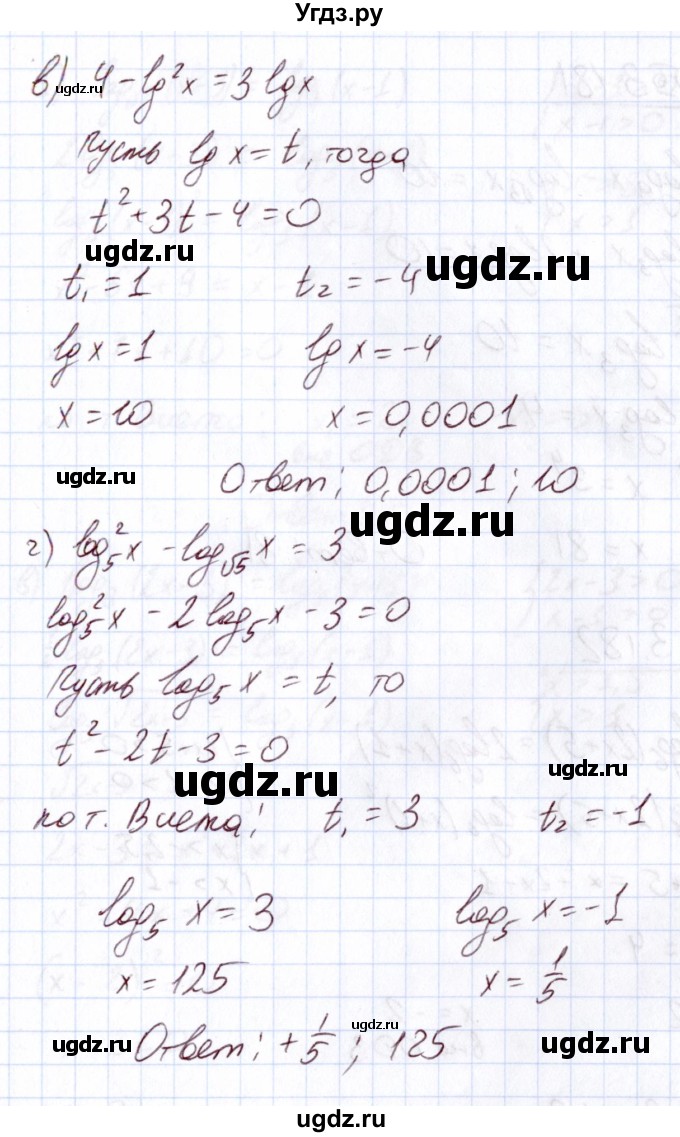 Угдз.ру
в) 4 - lg²x = 3 lg x
ugdz.ru
Пусть lg x = t, тогда
t² + 3t - 4 = 0
ugdz.ru
ugdz.ru
t₁ = 1 t₂ = -4
lg x = 1 lg x = -4
x = 10 x = 0,0001
ugdz.ru
Ответ: 0,0001; 10
ugdz.ru
г) log₅²x - log_√5 x = 3
log₅²x - 2 log₅x - 3 = 0
Пусть log₅ x = t, то
t² - 2t - 3 = 0
ugdz.ru
ugdz.ru
по т. Виета: t₁ = 3 t₂ = -1
log₅ x = 3 log₅ x = -1
x = 125 x = 1/5
ugdz.ru
Ответ: + 1/5; 125
ugdz.ru
ugdz.ru
ugdz.ru